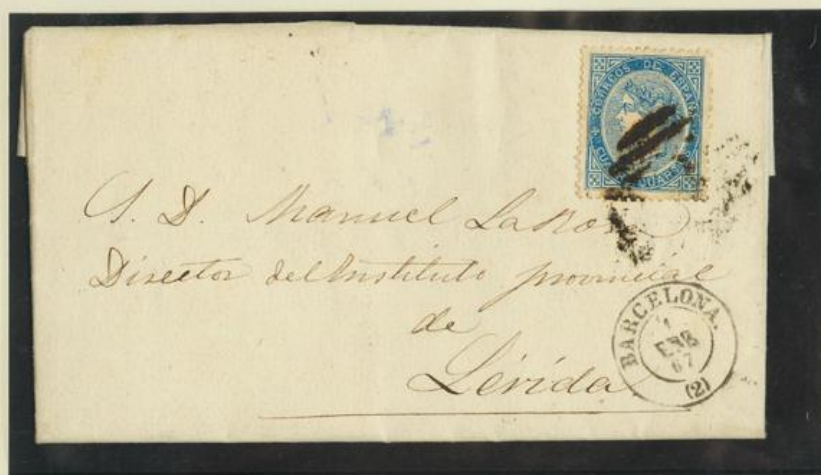 CORREOS DE ESPAÑA
CUATRO CUARTOS
S. D. Manuel
Director del Instituto provincial
de
Lérida
BARCELONA.
1
ENE
67
(2)